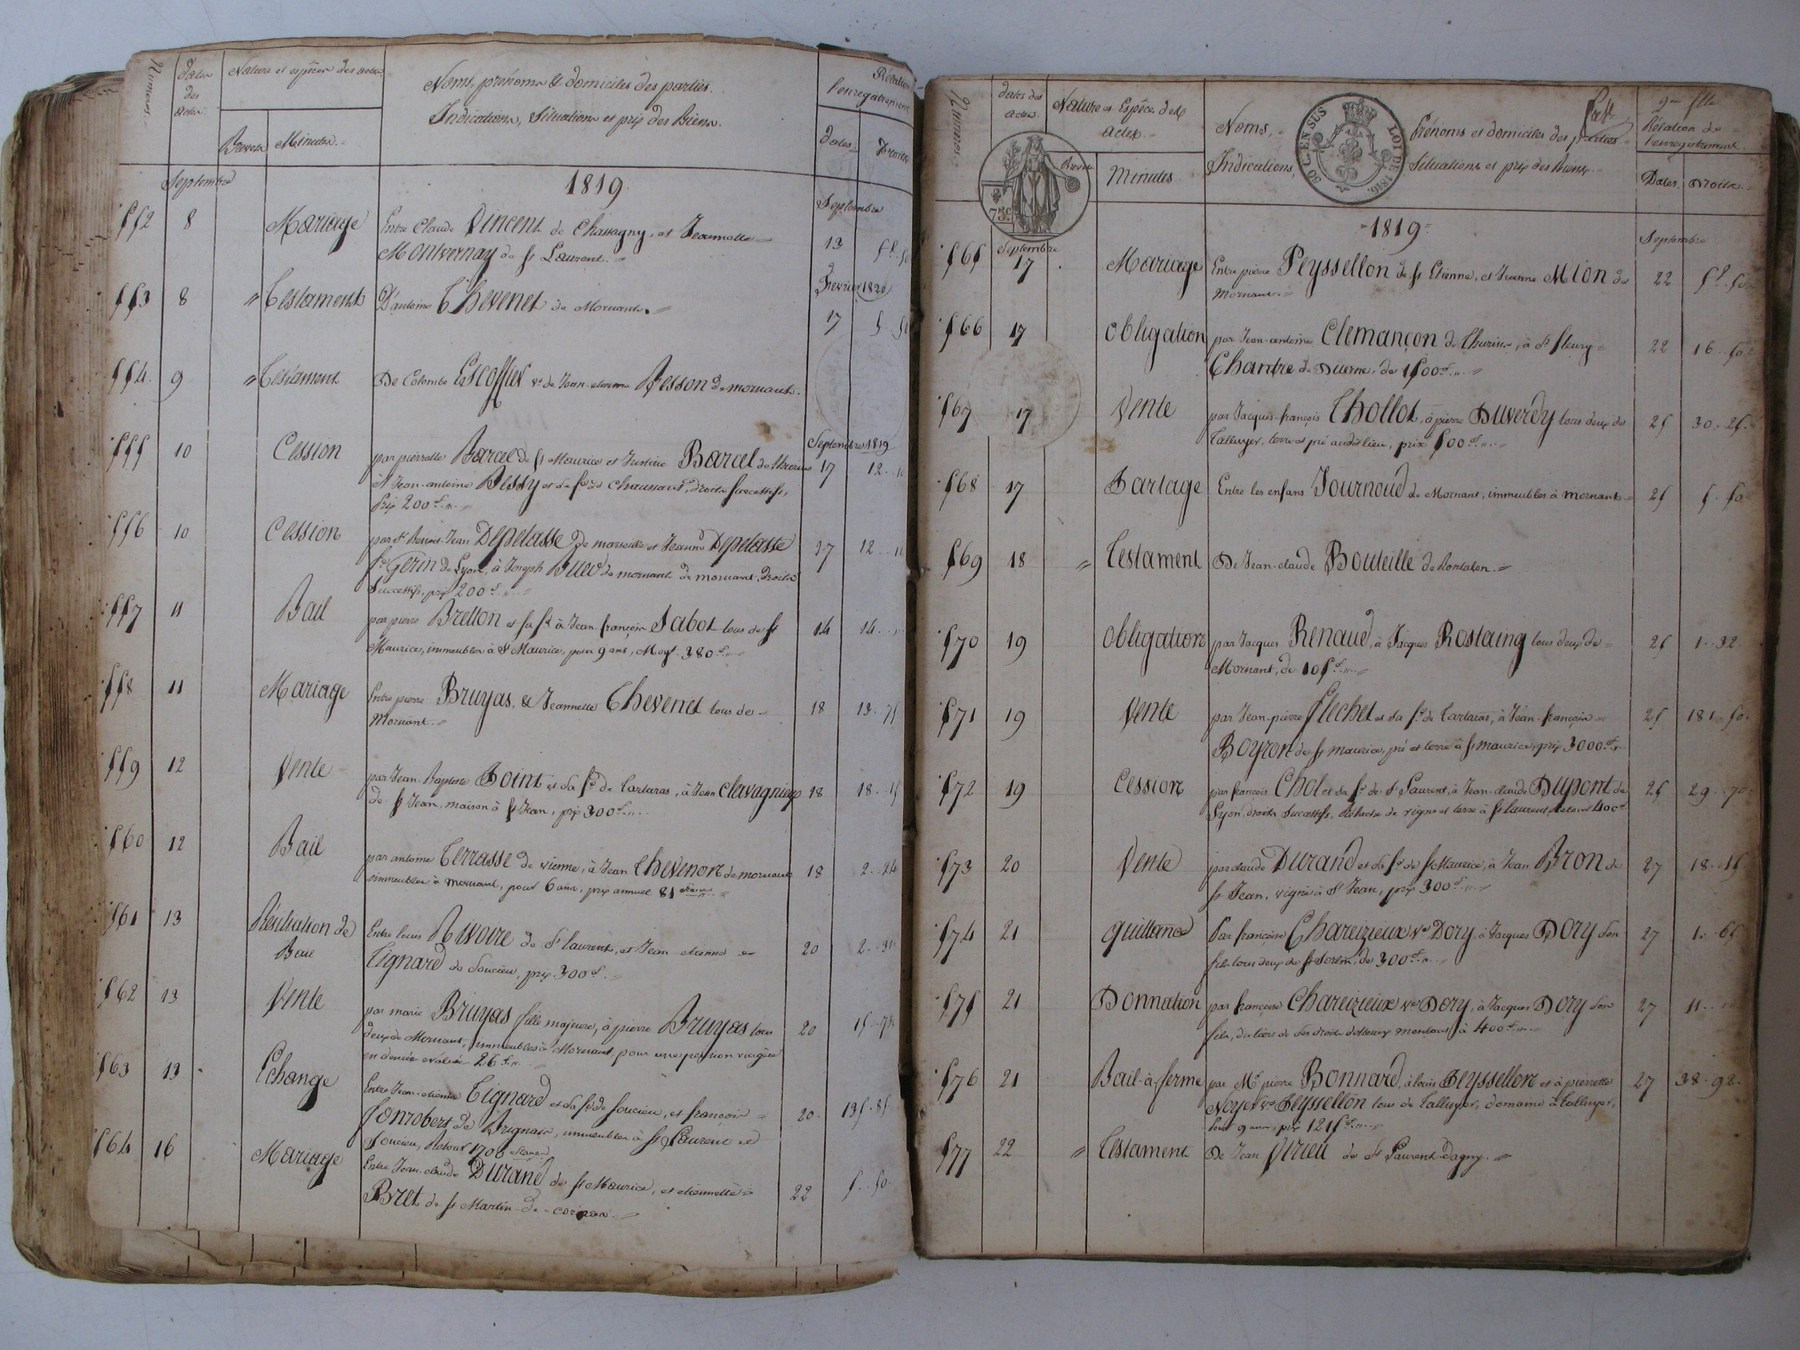 Numéros
Dates des actes
Nature et espèce des actes
Noms, prénoms & domiciles des parties.
Indications, Situations et prix des Biens.
Relation
l'enregistrement
Brevets Minutes
Dates Droits
Septembre 1819 Septembre
552 8 Mariage Entre Claude Vincent de Chassagny, et Jeannette 13
Montvernay de St Laurent.
Fevrier 1820
553 8 Testament D'antoine Thevenet de Mornant. 17
554 9 Testament De Colombe Escoffier ve de Jean-etienne Besson de mornant.
Septembre 1819
555 10 Cession par pierrette Barcel de St Maurice et Justine Barcel de 17 12
à Jean-antoine Bissy et sa fe de Chaussan, droits successifs,
prix 200f
556 10 Cession par St Benoit-Jean Depelasse de marseille et Jeanne Depelasse 17 12
fe Gerin de Lyon, à Joseph Buer de mornant de mornant, droits
successifs, prix 200f
557 11 Bail par pierre Bretton et sa fe à Jean françois Sabot tous de St 14 14
Maurice, immeubles à St Maurice, pour 9 ans, Moy. 380f
558 11 Mariage Entre pierre Bruyas, & Jeannette Thevenet tous de 18 13 75
Mornant.
559 12 Vente par Jean-Baptiste Point et sa fe de tartaras, à Jean Clavagnieux 18 18
de St Jean, maison à St Jean, prix 300f
560 12 Bail par antoine Terrasse de vienne, à Jean Thevenon de mornant 18 2 24
immeubles à mornant, pour 6 ans, prix annuel 81
561 13 Résiliation de Entre louis Rivoire de St laurent, et Jean-etienne 20 2
Bail Tignard de Soucieu, prix 300f
562 13 Vente par marie Bruyas fille majeure, à pierre Bruyas tous 20 15
deux de Mornant, immeubles à Mornant pour une pension viagère
en denrée evaluée 26f
563 13 Echange Entre Jean-etienne Tignard et sa fe de Soucieu, et françois 20 135 85
Jonrobert de Brignais, immeubles à St Laurent et
Soucieu, Retour 1700
564 16 Mariage Entre Jean-claude Durand de St Maurice, et etiennette 22 5 50
Bret de St Martin-de-cornas.
Numéros
Dates des actes
Nature et Espèce des
actes
Noms, Prénoms et domiciles des parties
Indications, Situations et prix des biens
Relation de
l'enregistrement
Brevets Minutes
Dates Droits
50 C. EN SUS LOI DE 1816.
75c
1819
Septembre Septembre
565 17 Mariage Entre pierre Peyssellon de St Etienne, et Jeanne Mion de 22 5f 50
Mornant.
566 17 Obligation par Jean-antoine Clemançon de Thurins, à St fleury 22 16 50
Chantre de Duerne, de 1500f
567 17 Vente par Jacques-françois Thollot, à pierre Duverdy tous deux de 25 30 25
Talluyer, terre et pré audit lieu, prix 500f
568 17 Partage Entre les enfans Journoud de Mornant, immeubles à mornant 25 5 50
569 18 Testament De Jean-claude Bouteille de Rontalon.
570 19 Obligation par Jacques Renaud, à Jacques Rostaing tous deux de 25 1 32
Mornant, de 105f
571 19 Vente par Jean-pierre flechet et sa fe de tartaras, à Jean-françois 25 181 50
Boyron de St maurice, pré et terre à St maurice, prix 3000f
572 19 Cession par françois Chol et sa fe de St Laurent, à Jean-claude Dupont de 25 29 70
Lyon droits successifs, de vigne et terre à St laurent 400f
573 20 Vente par claude Durand et sa fe de St Maurice, à Jean Bron de 27 18 15
St Jean, vigne à St Jean, prix 300f
574 21 quittance Par françoise Chareizieux ve Dory, à Jacques Dory son 27 1 65
fils tous deux de St Sorlin, de 300f
575 21 Donnation par françoise Chareizieux ve Dory, à Jacques Dory son 27 11
fils, du tiers de ses droits montant à 400f
576 21 Bail-à-ferme par Me pierre Bonnard, à louis Peyssellon et à pierrette 27 38 92
Noyer ve Peyssellon tous de talluyer, domaine à talluyer,
pour 9 ans, prix 1215f
577 22 Testament De Jean Virieu de St Laurent-d'agny.